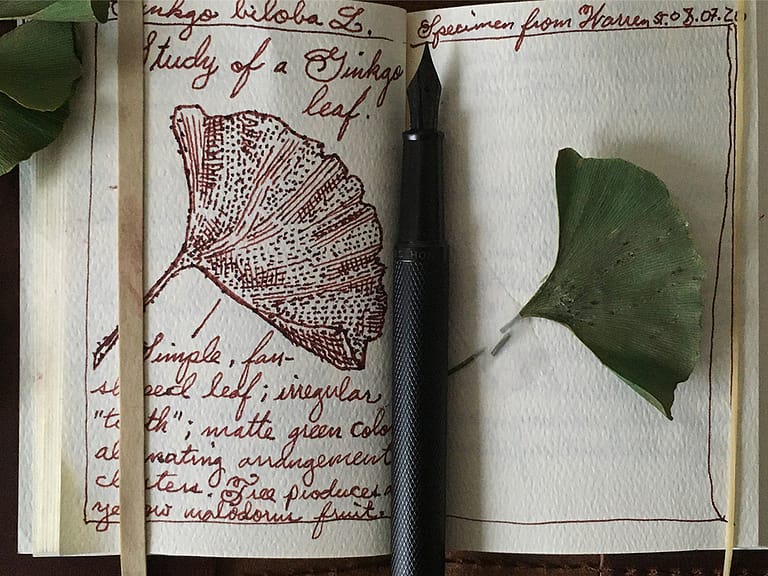 Ginkgo biloba L.
Study of a Ginkgo
leaf.
Simple, fan-
shaped leaf; irregular
"teeth"; matte green color
alternating arrangement
clusters. Tree produces a
yellow malodorus fruit.
Specimen from Warren St. 08.07.20